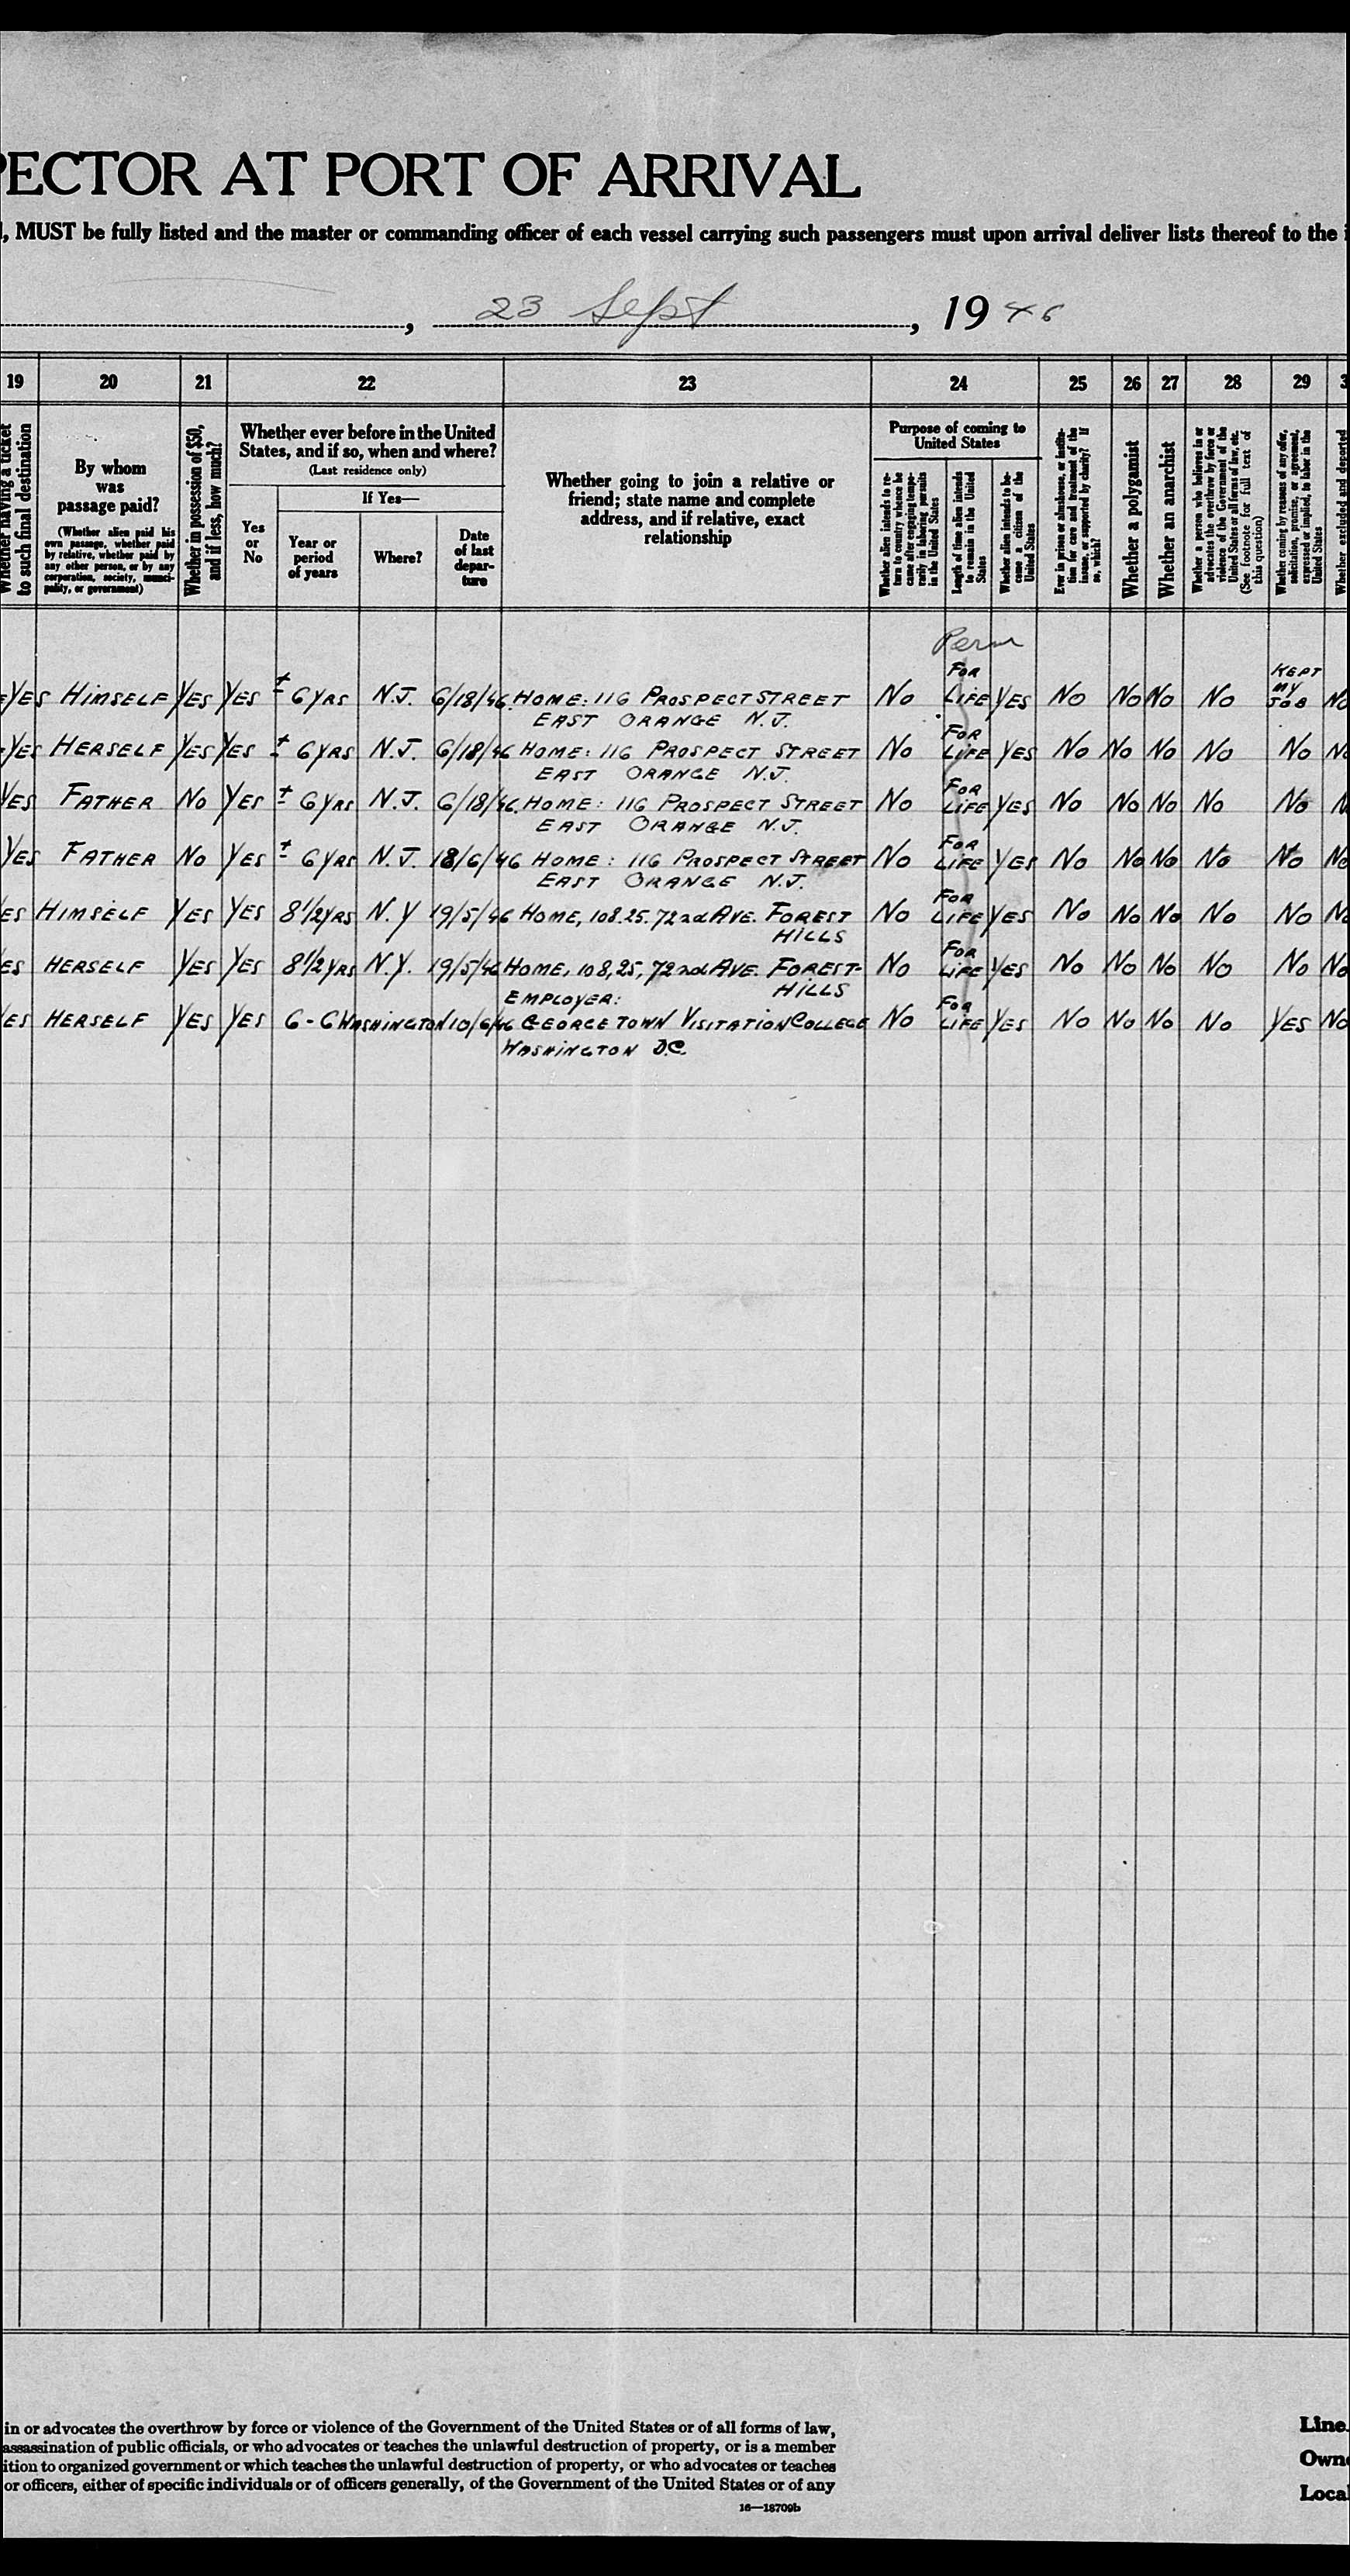 PECTOR AT PORT OF ARRIVAL
, MUST be fully listed and the master or commanding officer of each vessel carrying such passengers must upon arrival deliver lists thereof to the
, 23 Sept , 19 46
19 20 21 22 23 24 25 26 27 28 29 3
Whether having a ticket
to such final destination
By whom
was
passage paid?
(Whether alien paid his
own passage, whether paid
by relative, whether paid by
any other person, or by any
corporation, society, munici-
pality, or government)
Whether in possession of $50,
and if less, how much?
Whether ever before in the United
States, and if so, when and where?
(Last residence only)
Yes
or
No
If Yes—
Year or
period
of years
Where?
Date
of last
depar-
ture
Whether going to join a relative or
friend; state name and complete
address, and if relative, exact
relationship
Purpose of coming to
United States
Whether alien intends to re-
turn to country whence he
came after engaging tempo-
rarily in laboring pursuits
in the United States
Length of time alien intends
to remain in the United
States
Whether alien intends to be-
come a citizen of the
United States
Ever in prison or almshouse, or institu-
tion for care and treatment of the
insane, or supported by charity? If
so, which?
Whether a polygamist
Whether an anarchist
Whether a person who believes in or
advocates the overthrow by force or
violence of the Government of the
United States or all forms of law, etc.
(See footnote for full text of
this question)
Whether coming by reason of any offer,
solicitation, promise, or agreement,
expressed or implied, to labor in the
United States
Whether excluded and deported
Perm
FOR KEPT
YES HIMSELF YES YES ± 6 YRS N.J. 6/18/46 HOME: 116 PROSPECT STREET NO LIFE YES NO NO NO NO MY JOB NO
EAST ORANGE N.J.
FOR
YES HERSELF YES YES ± 6 YRS N.J. 6/18/46 HOME: 116 PROSPECT STREET NO LIFE YES NO NO NO NO NO NO
EAST ORANGE N.J.
FOR
YES FATHER NO YES ± 6 YRS N.J. 6/18/46 HOME: 116 PROSPECT STREET NO LIFE YES NO NO NO NO NO N
EAST ORANGE N.J.
FOR
YES FATHER NO YES ± 6 YRS N.J. 18/6/46 HOME: 116 PROSPECT STREET NO LIFE YES NO NO NO NO NO NO
EAST ORANGE N.J.
FOR
ES HIMSELF YES YES 8 1/2 YRS N.Y 19/5/46 HOME, 108.25.72nd AVE. FOREST NO LIFE YES NO NO NO NO NO NO
HILLS
FOR
ES HERSELF YES YES 8 1/2 YRS N.Y. 19/5/46 HOME, 108,25, 72nd AVE. FOREST- NO LIFE YES NO NO NO NO NO NO
HILLS
EMPLOYER: FOR
ES HERSELF YES YES 6-6 WASHINGTON 10/6/46 GEORGETOWN VISITATION COLLEGE NO LIFE YES NO NO NO NO YES NO
WASHINGTON D.C.
in or advocates the overthrow by force or violence of the Government of the United States or of all forms of law,
assassination of public officials, or who advocates or teaches the unlawful destruction of property, or is a member
ition to organized government or which teaches the unlawful destruction of property, or who advocates or teaches
or officers, either of specific individuals or of officers generally, of the Government of the United States or of any
16—18709b
Line
Own
Loca